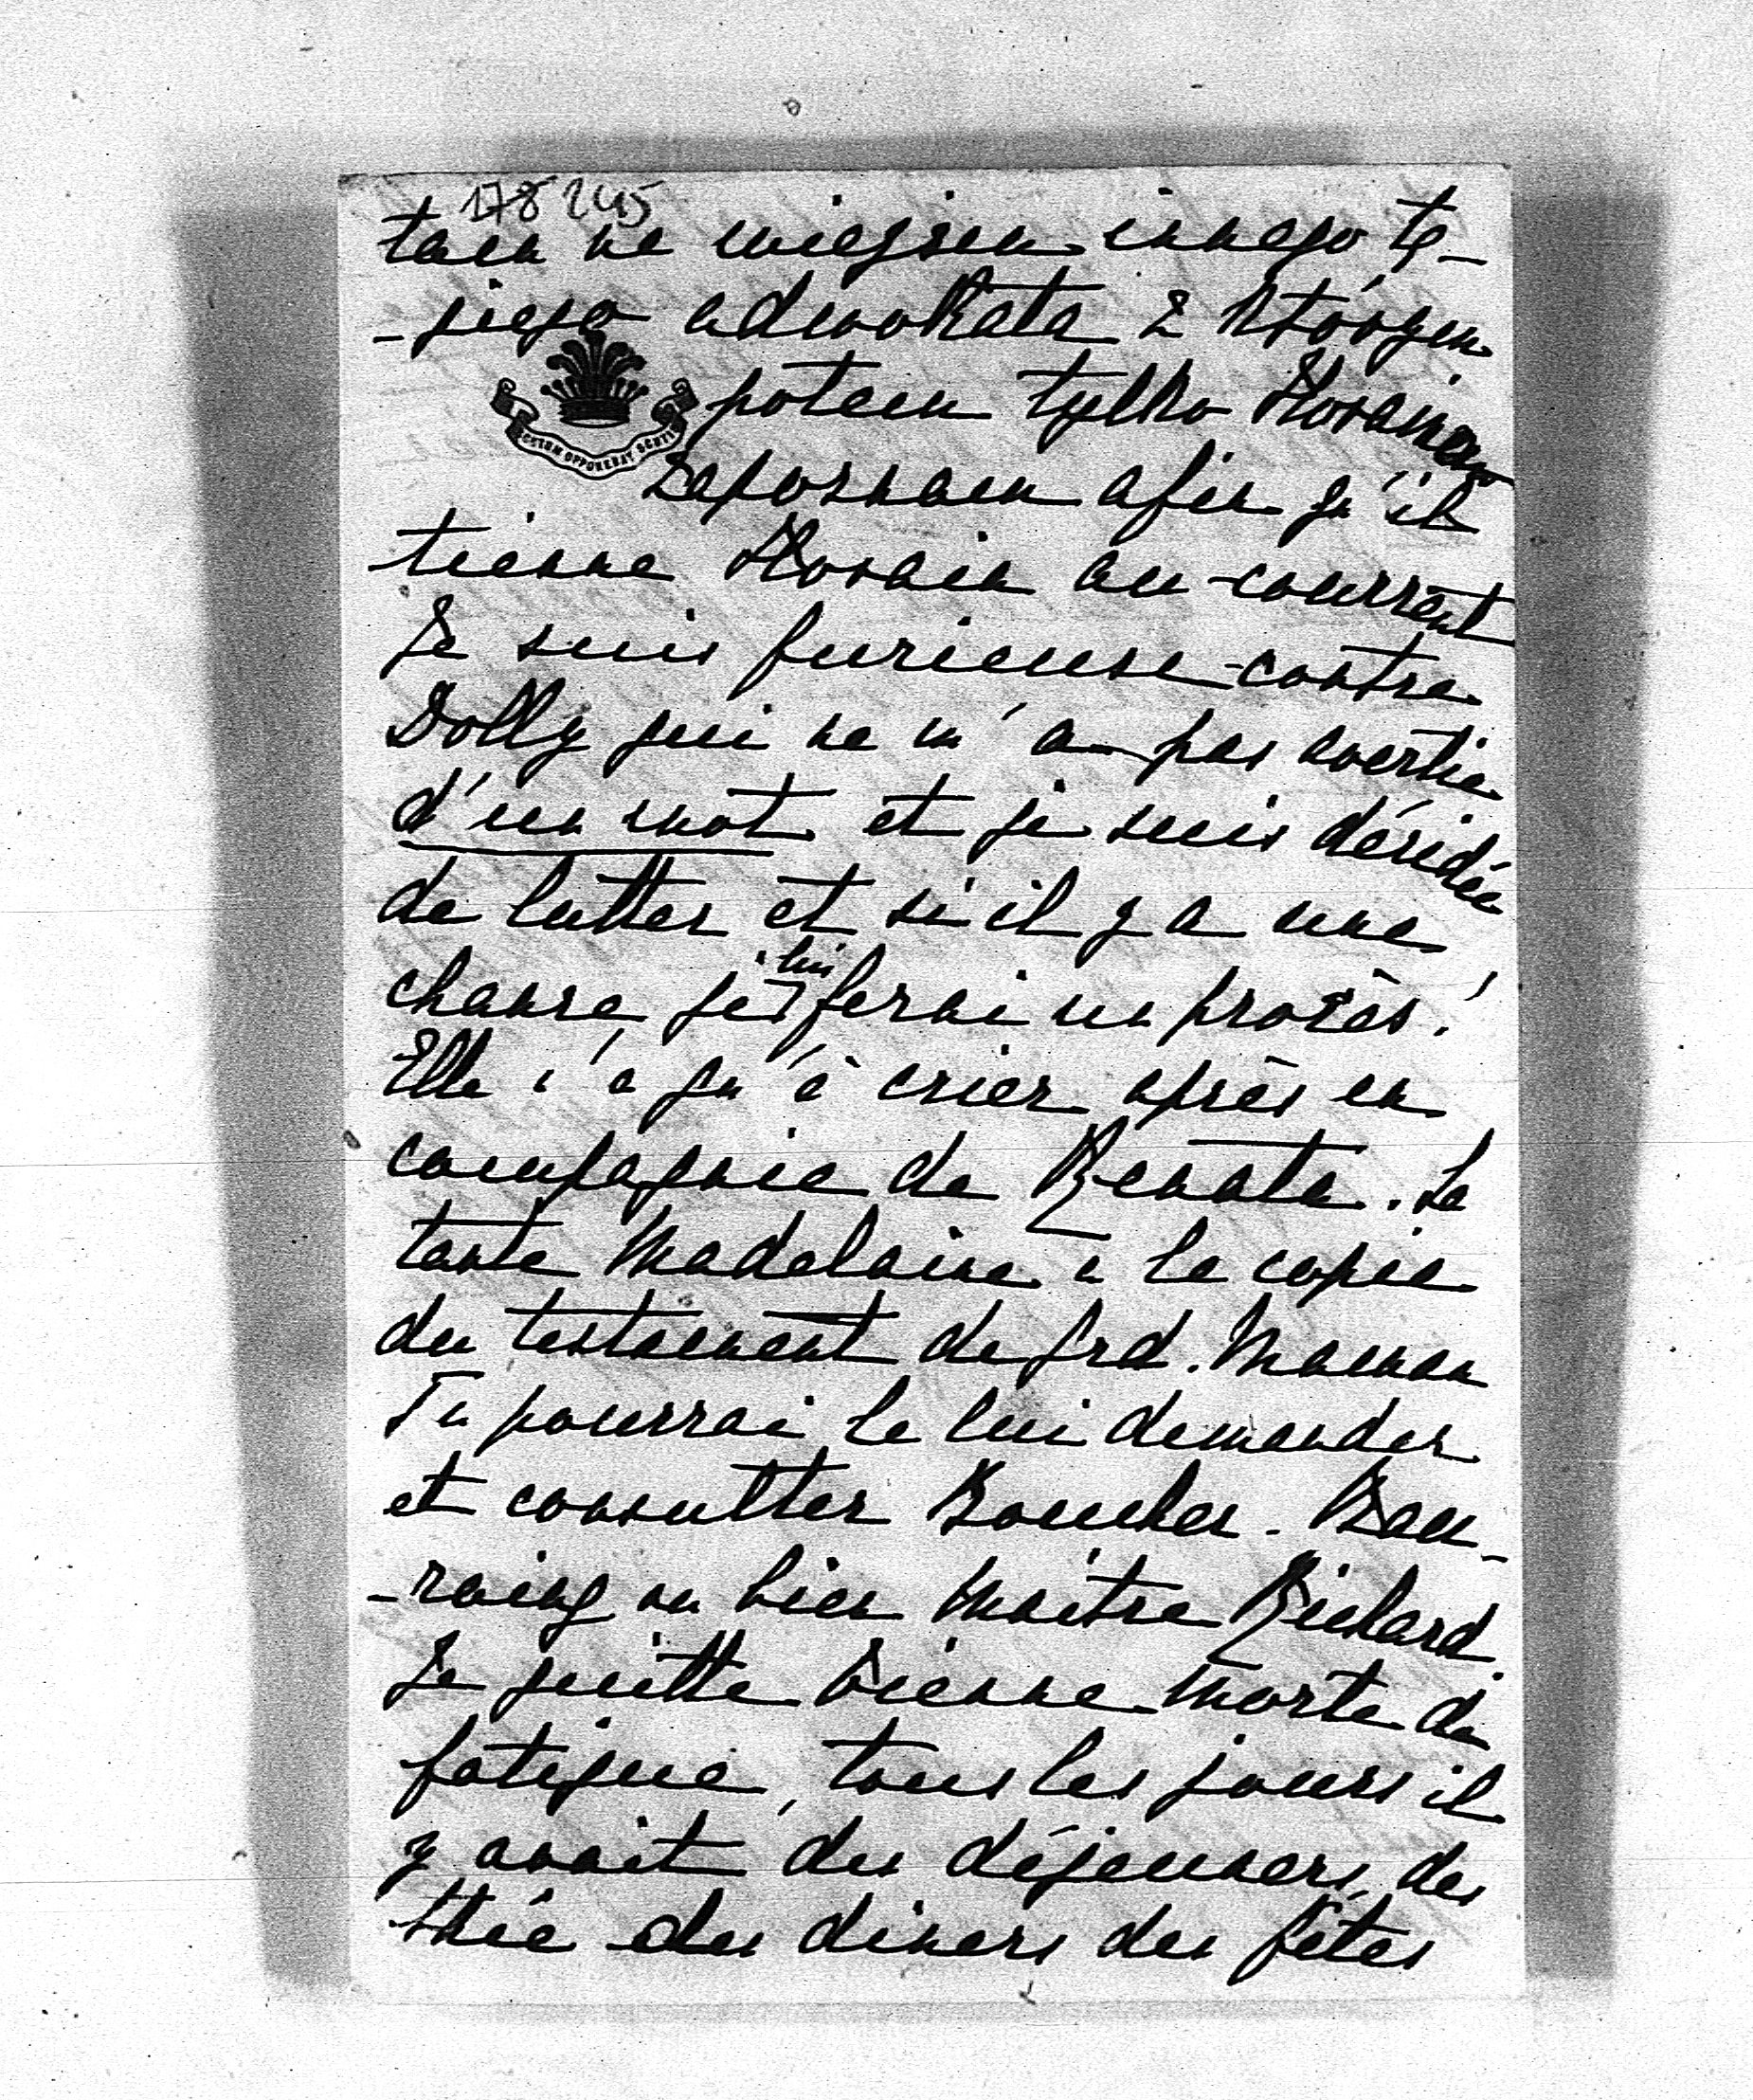 178 245
tam na miejscu innego tę-
-giego adwokata z którym
potem tylko Horaina
SCUTUM OPPONEBAT SCUTIS
zapoznam afin qu'il
tienne Horain au courrent
Je suis furieuse contre
Dolly qui ne m'a pas avertie
d'un mot et je suis décidée
de lutter et si il y a une
chance, je lui ferai un procès!
Elle n'a qu'à crier après en
compagnie de Renata. La
tante Madelaine a la copie
du testament de grd. Maman
Tu pourrai le lui demander
et consulter Boucher. Beu-
-raing ou bien Maître Richard.
Je quitte Vienne morte de
fatigue, tous les jours il
y avait des déjeuners, des
thée des diners des fêtes